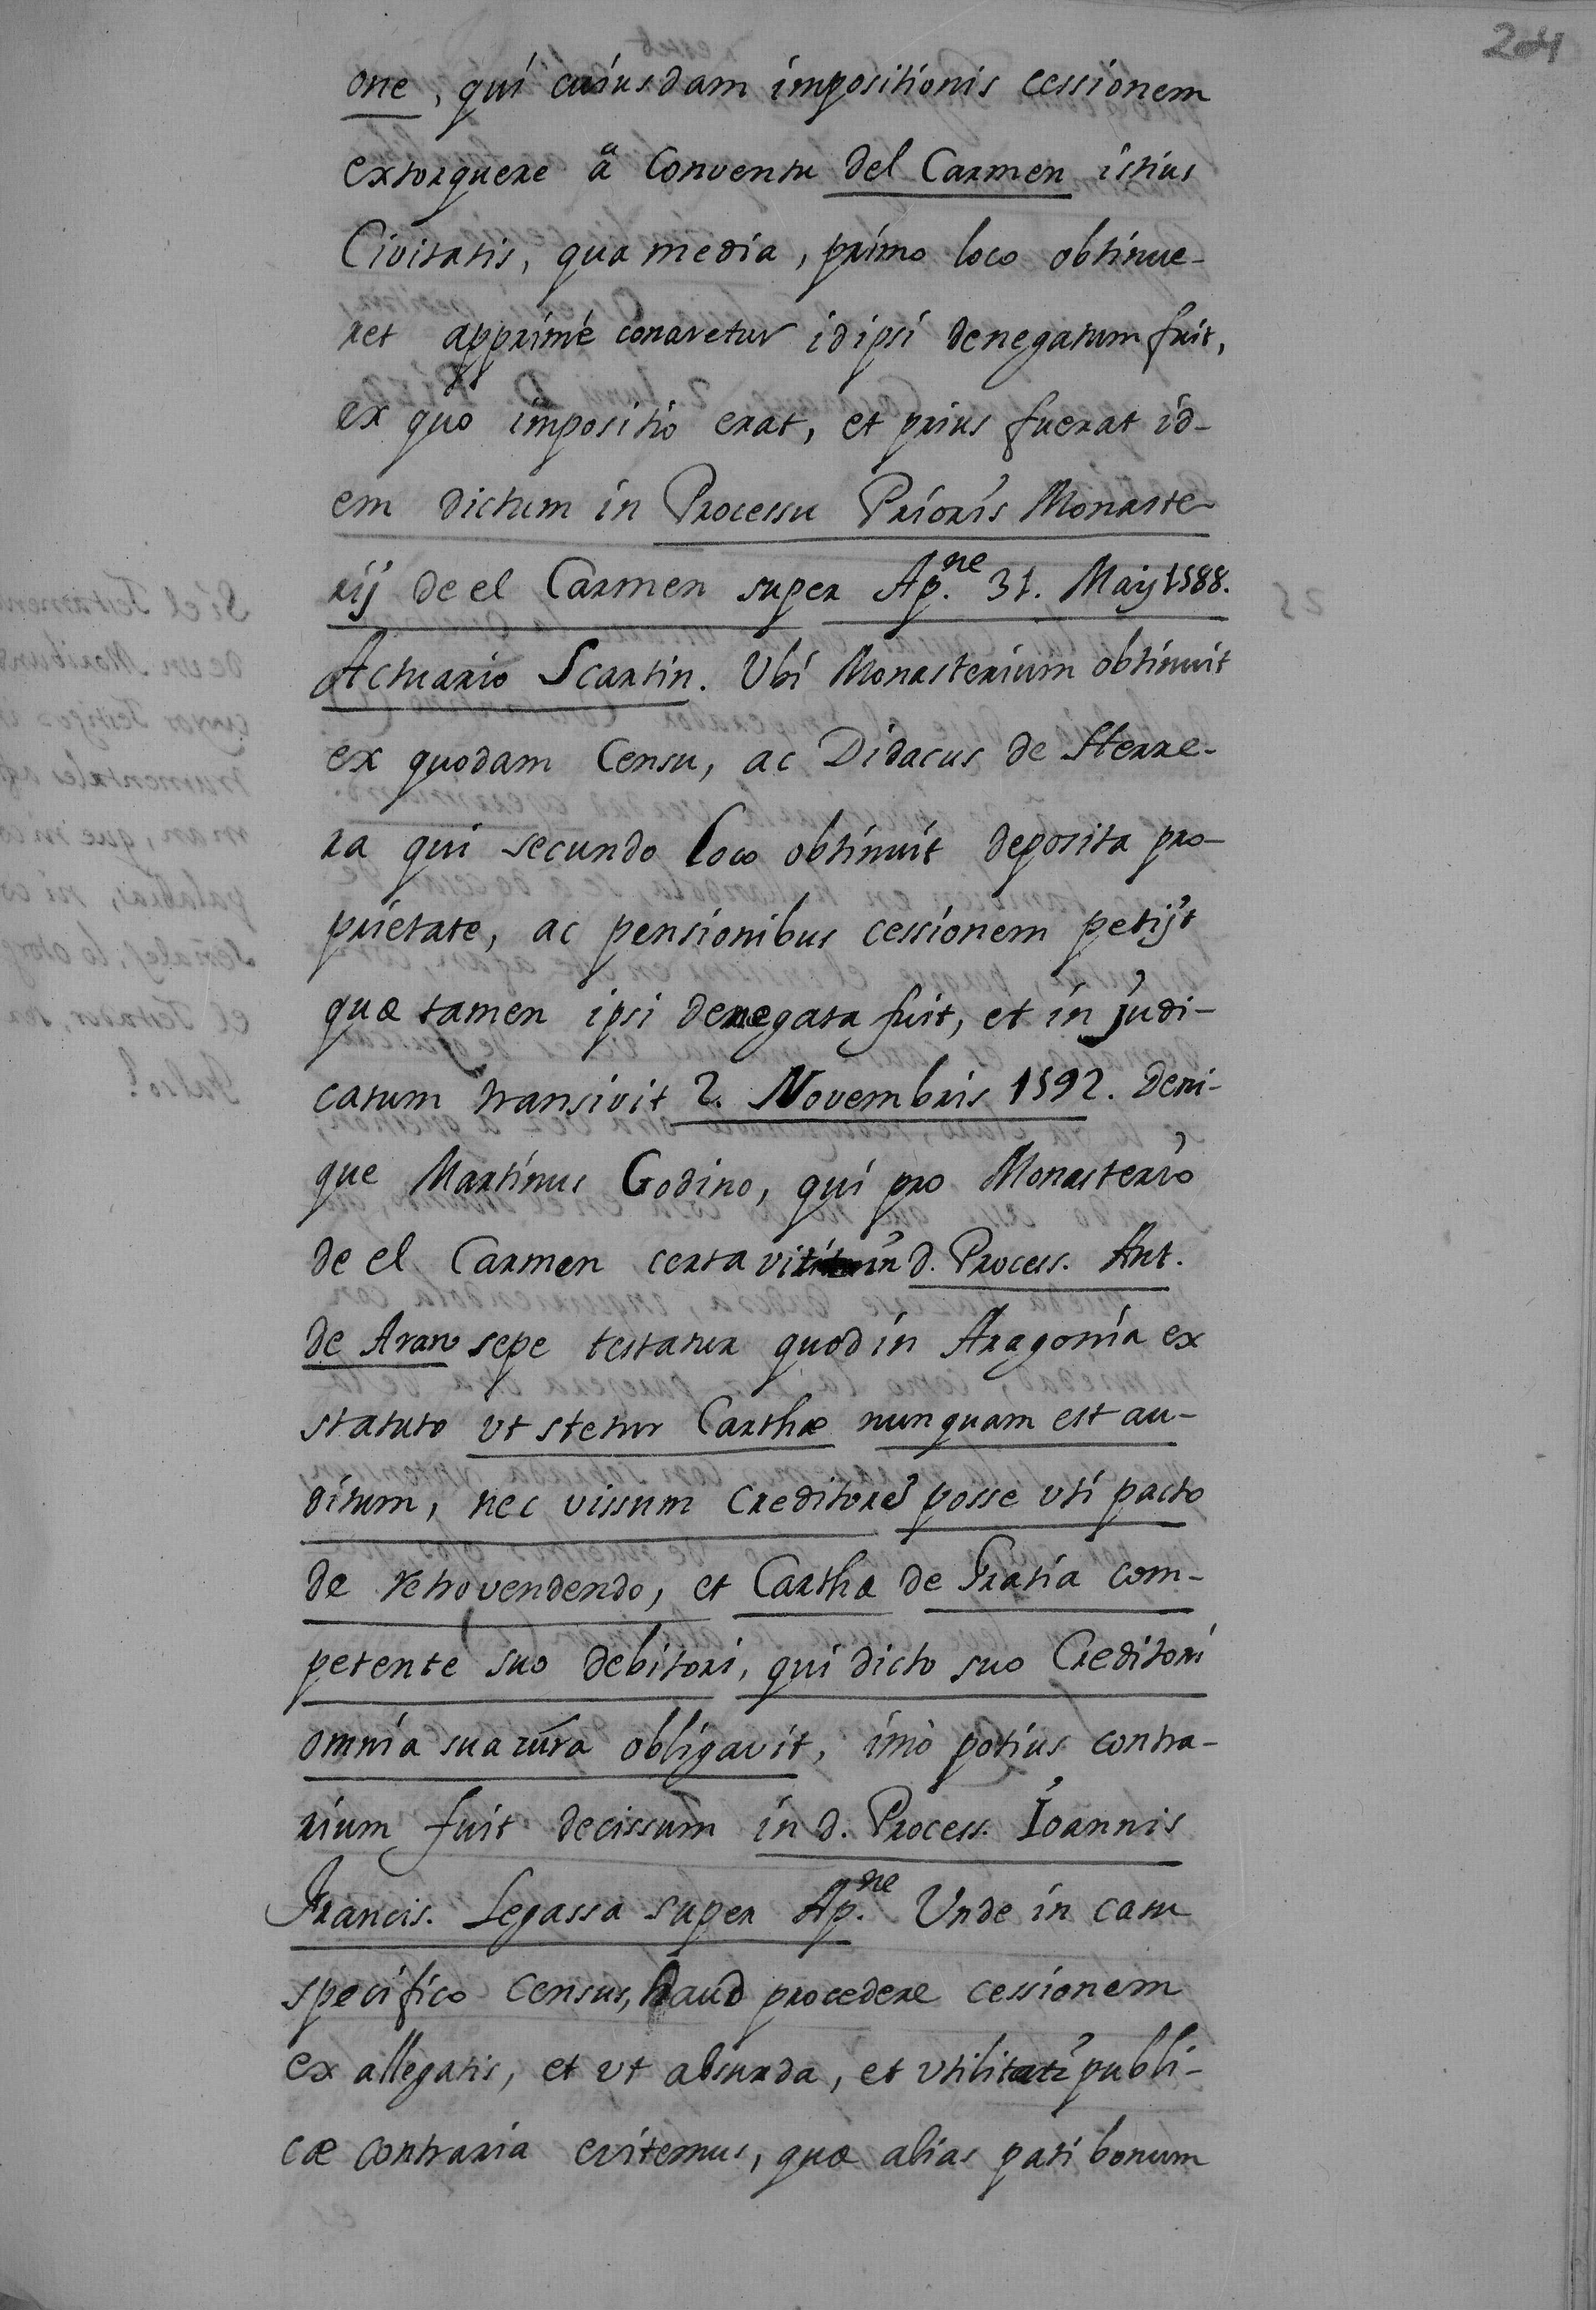 204
one, qui cuiusdam impositionis cessionem
extorquere â Conventu del Carmen istius
Civitatis, qua media, primo loco obtinue-
ret apprimé conaretur id ipsi denegatum fuit,
ex quo impositio erat, et prius fuerat id-
em dictum in Processu Prioris Monaste-
rij de el Carmen super Ap.ne 31. Maij 1588.
Actuario Scartin. Ubi Monasterium obtinuit
ex quodam Censu, ac Didacus de Herre-
ra qui secundo loco obtinuit deposita pro-
prietate, ac pensionibus cessionem petijt
quæ tamen ipsi denegata fuit, et in judi-
catum transivit 2. Novembris 1592. Deni-
que Martinus Godino, qui pro Monasterio
de el Carmen certavit in d. Process. Ant.
de Aran sepe testatur quod in Aragonia ex
statuto vt stetur Carthæ nunquam est au-
ditum, nec vissum Creditores posse vti pacto
de retrovendendo, et Cartha de Gratia com-
petente suo debitori, qui dicto suo Creditori
omnia sua iura obligavit, imò potius contra-
rium fuit decissum in d. Process. Ioannis
Francis. Legassa super Ap.ne Unde in casu
specifico Census, haud procedere cessionem
ex allegatis, et vt absurda, et vtilitati publi-
cæ contraria evitemus, quæ alias pati bonum